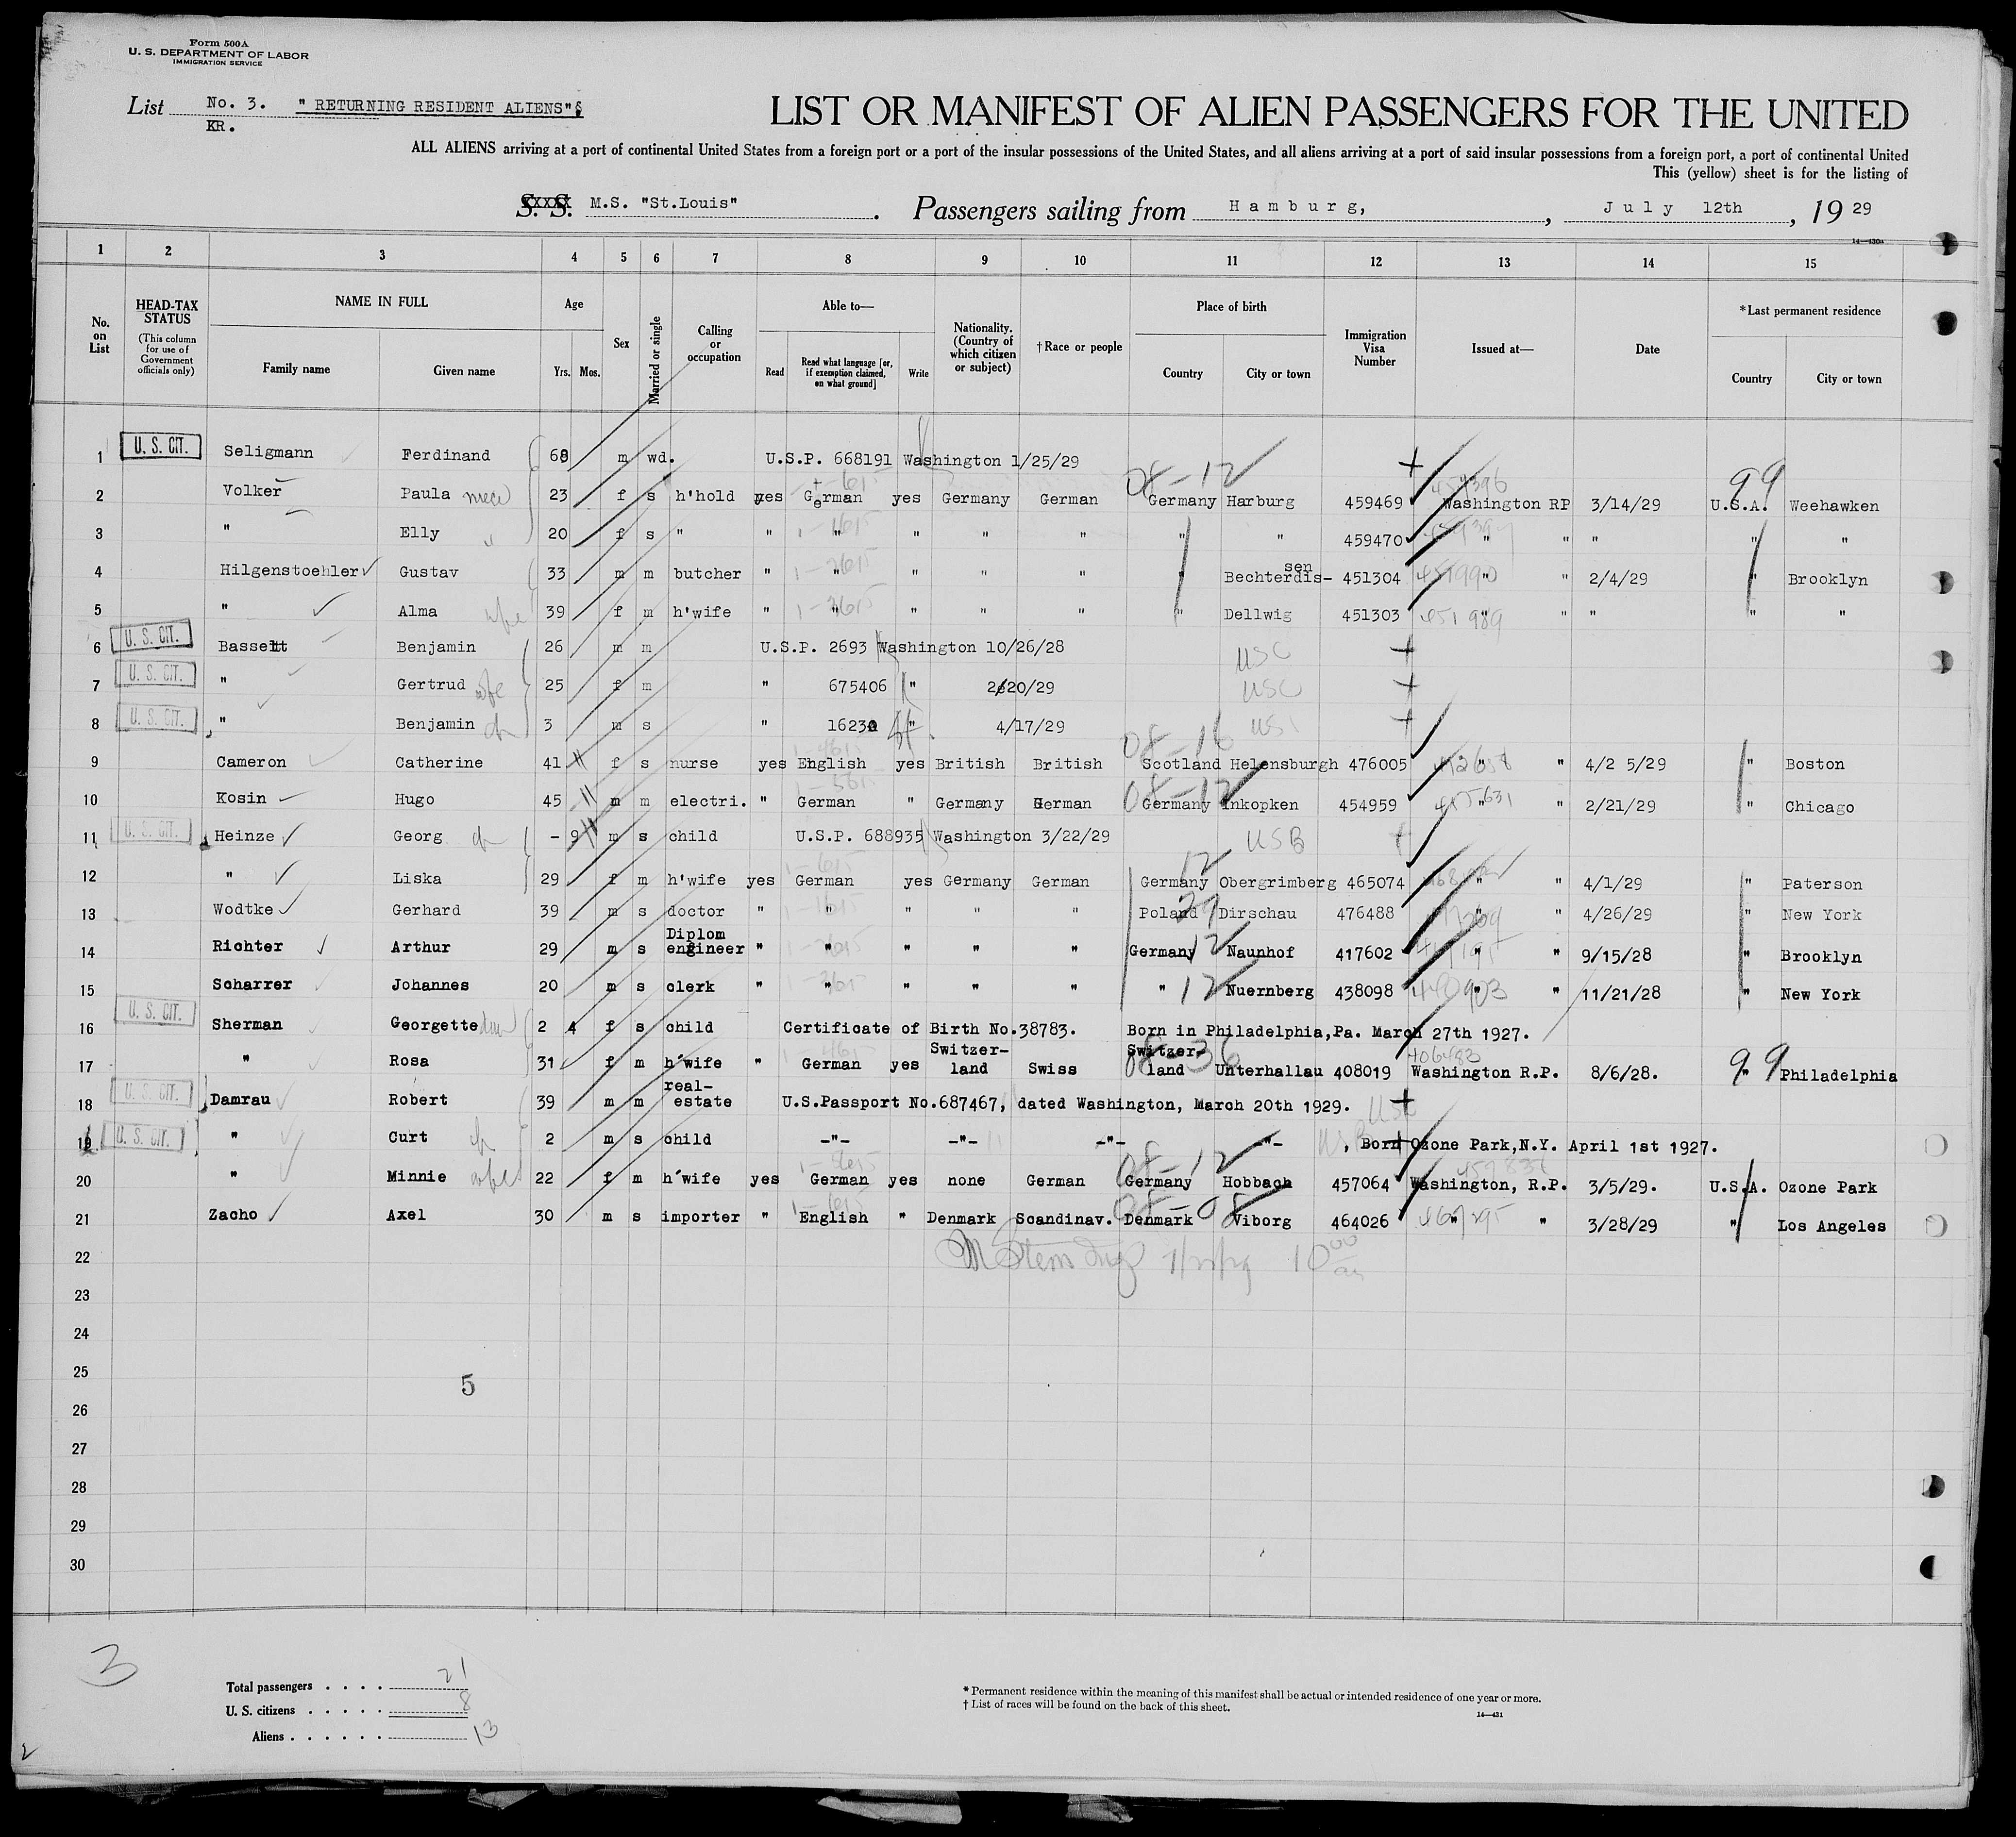 Form 500A
U. S. DEPARTMENT OF LABOR
IMMIGRATION SERVICE
List No. 3. " RETURNING RESIDENT ALIENS"
KR.
LIST OR MANIFEST OF ALIEN PASSENGERS FOR THE UNITED
ALL ALIENS arriving at a port of continental United States from a foreign port or a port of the insular possessions of the United States, and all aliens arriving at a port of said insular possessions from a foreign port, a port of continental United
This (yellow) sheet is for the listing of
S. S. M.S. "St.Louis" . Passengers sailing from Hamburg, , July 12th , 19 29
14—430a
1 2 3 4 5 6 7 8 9 10 11 12 13 14 15
No. on List
HEAD-TAX STATUS (This column for use of Government officials only)
NAME IN FULL Family name Given name
Age Yrs. Mos.
Sex
Married or single
Calling or occupation
Able to— Read Read what language [or, if exemption claimed, on what ground] Write
Nationality. (Country of which citizen or subject)
†Race or people
Place of birth Country City or town
Immigration Visa Number
Issued at—
Date
*Last permanent residence Country City or town
1 U. S. CIT. Seligmann Ferdinand 68 m wd. U.S.P. 668191 Washington 1/25/29
2 Volker Paula niece 23 f s h'hold yes German yes Germany German 08-12 Germany Harburg 459469 Washington RP 3/14/29 99 U.S.A. Weehawken
3 " Elly 20 f s " " " " " " " " 459470 " " " " "
4 Hilgenstoehler Gustav 33 m m butcher " " " " " " Bechterdis-sen 451304 " " 2/4/29 " Brooklyn
5 " Alma wife 39 f m h'wife " " " " " " Dellwig 451303 451989 " " " "
6 U. S. CIT. Bassett Benjamin 26 m m U.S.P. 2693 Washington 10/26/28 USC
7 U. S. CIT. " Gertrud wife 25 f m " 675406 " 2/20/29 USC
8 U. S. CIT. " Benjamin ch 3 m s " 16230 " 4/17/29
9 Cameron Catherine 41 f s nurse yes English yes British British 08-16 Scotland Helensburgh 476005 " " 4/2 5/29 " Boston
10 Kosin Hugo 45 m m electri. " German " Germany German 08-12 Germany Inkopken 454959 " " 2/21/29 " Chicago
11 U. S. CIT. Heinze Georg ch - 9 m s child U.S.P. 688935 Washington 3/22/29 USB
12 " Liska 29 f m h'wife yes German yes Germany German 12 Germany Obergrimberg 465074 " " 4/1/29 " Paterson
13 Wodtke Gerhard 39 m s doctor " " " " " Poland Dirschau 476488 " " 4/26/29 " New York
14 Richter Arthur 29 m s Diplom engineer " " " " " Germany 12 Naunhof 417602 " " 9/15/28 " Brooklyn
15 Scharrer Johannes 20 m s clerk " " " " " " 12 Nuernberg 438098 " " 11/21/28 " New York
16 U. S. CIT. Sherman Georgette 2 4 f s child Certificate of Birth No.38783. Born in Philadelphia,Pa. March 27th 1927.
17 " Rosa 31 f m h'wife " German yes Switzer-land Swiss 08-36 Switzer-land Unterhallau 408019 Washington R.P. 8/6/28. 99 " Philadelphia
18 U. S. CIT. Damrau Robert 39 m m real-estate U.S.Passport No.687467, dated Washington, March 20th 1929. USC
19 U. S. CIT. " Curt ch 2 m s child -"- -"- -"- -"- , Born Ozone Park,N.Y. April 1st 1927.
20 " Minnie wife 22 f m h'wife yes German yes none German 08-12 Germany Hobbach 457064 Washington, R.P. 3/5/29. U.S.A. Ozone Park
21 Zacho Axel 30 m s importer " English " Denmark Scandinav. 08-08 Denmark Viborg 464026 " " 3/28/29 " Los Angeles
22
23
24
25
5
26
27
28
29
30
3
Total passengers . . . . 21
U. S. citizens . . . . . 8
Aliens . . . . . . 13
* Permanent residence within the meaning of this manifest shall be actual or intended residence of one year or more.
† List of races will be found on the back of this sheet.
14—431